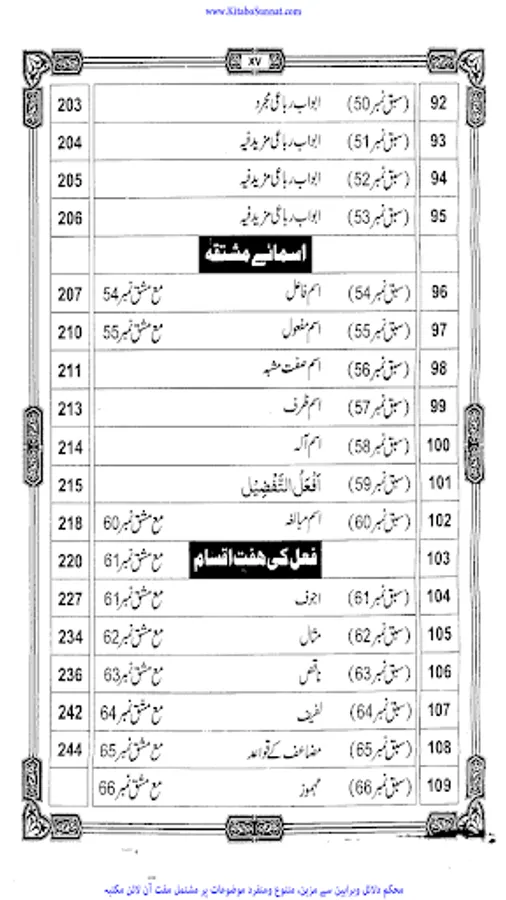 www.KitaboSunnat.com
XV
92 (سبق نمبر 50) ابواب رباعی مجرد 203
93 (سبق نمبر 51) ابواب رباعی مزید فیہ 204
94 (سبق نمبر 52) ابواب رباعی مزید فیہ 205
95 (سبق نمبر 53) ابواب رباعی مزید فیہ 206
اسمائے مشتقہ
96 (سبق نمبر 54) اسم فاعل مع مشق نمبر 54 207
97 (سبق نمبر 55) اسم مفعول مع مشق نمبر 55 210
98 (سبق نمبر 56) اسم صفت مشبہ 211
99 (سبق نمبر 57) اسم ظرف 213
100 (سبق نمبر 58) اسم آلہ 214
101 (سبق نمبر 59) اَفْعَلُ التَّفْضِيل 215
102 (سبق نمبر 60) اسم مبالغہ مع مشق نمبر 60 218
103 فعل کی ہفت اقسام مع مشق نمبر 61 220
104 (سبق نمبر 61) اجوف مع مشق نمبر 61 227
105 (سبق نمبر 62) مثال مع مشق نمبر 62 234
106 (سبق نمبر 63) ناقص مع مشق نمبر 63 236
107 (سبق نمبر 64) لفیف مع مشق نمبر 64 242
108 (سبق نمبر 65) مضاعف کے قواعد مع مشق نمبر 65 244
109 (سبق نمبر 66) مہموز مع مشق نمبر 66
محکم دلائل وبراہین سے مزین، متنوع ومنفرد موضوعات پر مشتمل مفت آن لائن مکتبہ